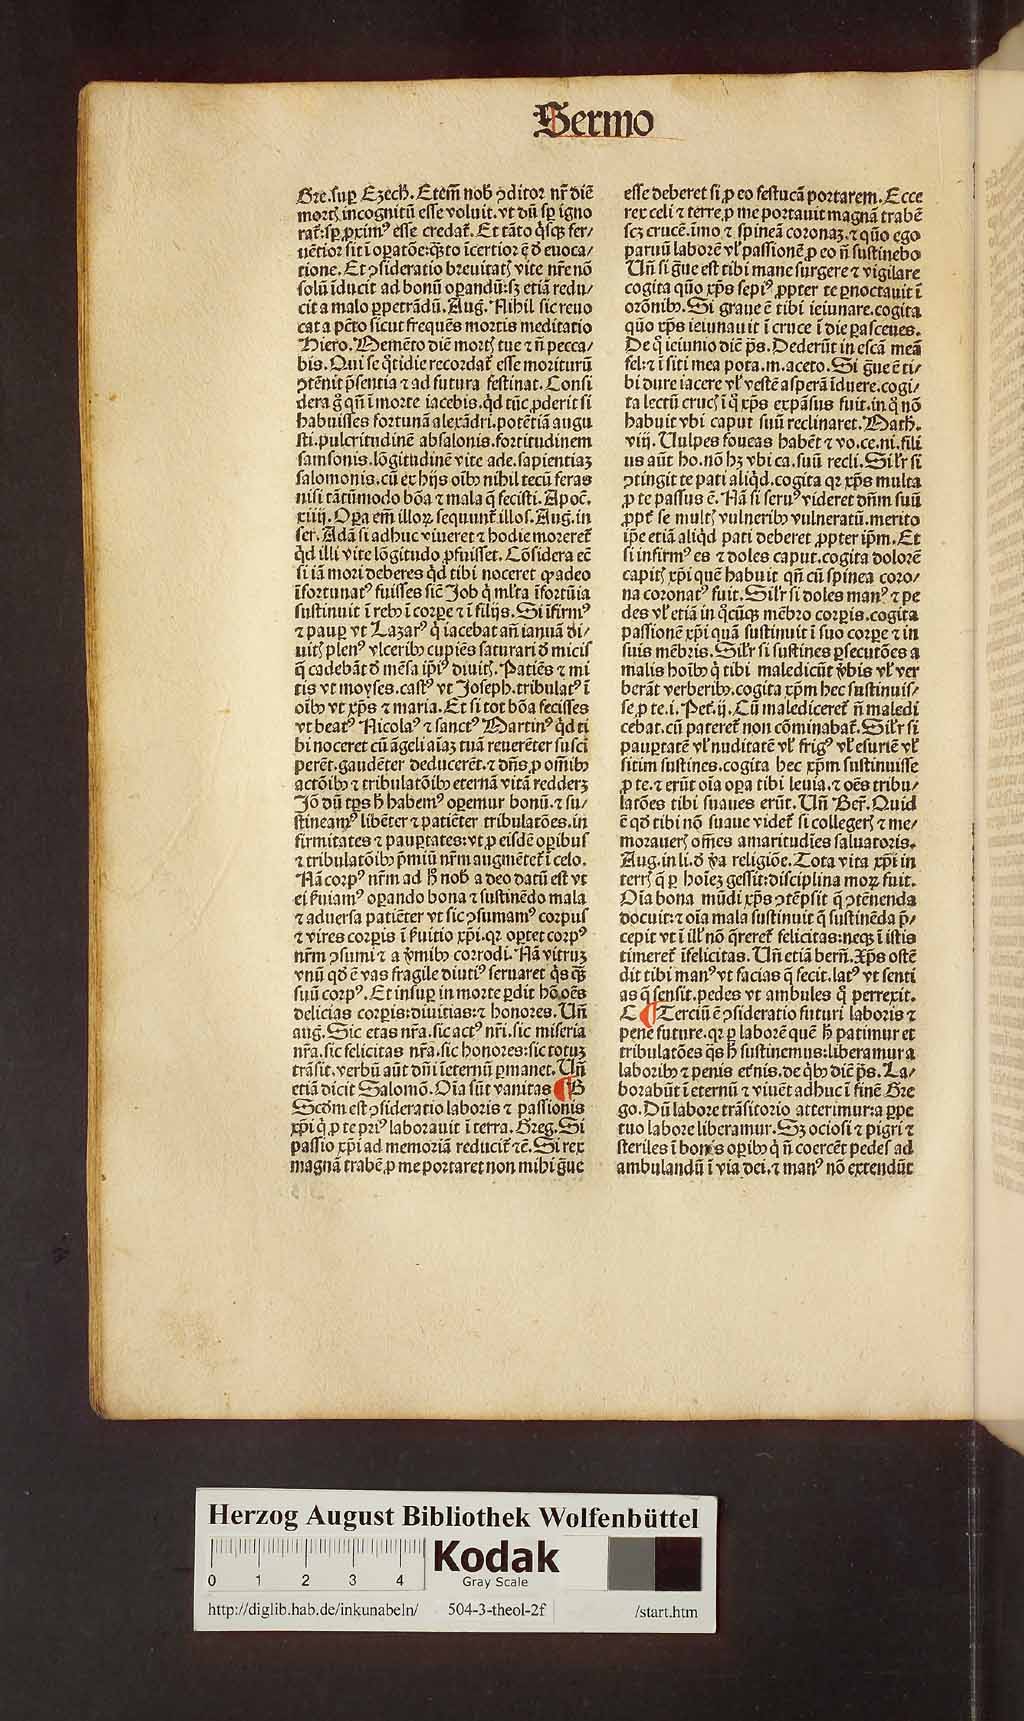 Sermo
Gre.sup̲ Ezech̅. Etem̅ nob̅ ↄditor nr̅ diē
mortꝭ incognitū esse voluit. vt dū sp̲ igno
rat̅: sp̲ ꝓximꝰ esse credat̅. Et tāto q̊sꝫ fer/
uētior sit ī op̲atōe: q̊ꝫto īcertior ē d̅ euoca/
tione. Et ↄsideratio breuitatꝭ vite nr̅e nō
solū īducit ad bonū op̲andū: sꝫ etiā redu/
cit a malo p̲petrādū. Aug. Nihil sic reuo
cat a pc̄to sicut frequēs mortis meditatio
Hiero. Memēto diē mortꝭ tue ⁊ n̄ pecca/
bis. Qui se q̊tidie recordat̅ esse moriturū
ↄtēnit p̄sentia ⁊ ad futura festinat. Consi
dera g̊ qn̄ ī morte iacebis. qd̅ tūc ꝓderit si
habuisses fortunā alexādri. potētiā augu
sti. pulcritudinē absalonis. fortitudinem
samsonis. lōgitudinē vite ade. sapientiaꝫ
salomonis. cū ex hijs oībꝫ nihil tecū feras
nisi tātūmodo bōa ⁊ mala q̄ fecisti. Apoc̄.
xiiij. Op̲a em̄ illoꝝ sequunt̅ illos. Aug. in
ser. Adā si adhuc viueret ⁊ hodie moreret̅
qd̅ illi vite lōgitudo ꝓfuisset. Cōsidera ec̄
si iā mori deberes qd̅ tibi noceret ꝙ adeo
īfortunatꝰ fuisses sic̄ Job q̇ ml̅ta īfortūia
sustinuit ī rebꝫ ī corp̲e ⁊ ī filijs. Si īfirmꝰ
⁊ paup̲ vt Lazarꝰ q̇ iacebat an̄ ianuā di/
uitꝭ plenꝰ vlceribꝫ cupiēs saturari d̅ micis
q̄ cadebāt d̅ mēsa ip̄iꝰ diuitꝭ. Patiēs ⁊ mi
tis vt moyses. castꝰ vt Joseph. tribulatꝰ ī
oībꝫ vt xp̄s ⁊ maria. Et si tot bōa fecisses
vt beatꝰ Nicolaꝰ ⁊ sanctꝰ Martinꝰ qd̅ ti
bi noceret cū āgeli aīaꝫ tuā reuerēter susci
perēt. gaudēter deducerēt. ⁊ dn̄s ꝓ om̄ibꝫ
actōibꝫ ⁊ tribulatōibꝫ eternā vitā redderꝫ
Jō dū tp̲s h̅ habemꝰ op̲emur bonū. ⁊ su/
stineamꝰ libēter ⁊ patiēter tribulatōes. in
firmitates ⁊ paup̲tates: vt ꝓ eisdē op̲ibus
⁊ tribulatōibꝫ p̄miū nr̄m augmētet̅ ī celo.
Nā corpꝰ nr̄m ad h̅ nob̅ a deo datū est vt
ei ẜuiamꝰ op̲ando bona ⁊ sustinēdo mala
⁊ aduersa patiēter vt sic ↄsumamꝰ corpus
⁊ vires corp̲is ī ẜuitio xp̄i. qꝛ op̲tet corpꝰ
nr̄m ↄsumi ⁊ a v̄mibꝫ corrodi. Nā vitruꝫ
vnū qd̅ ē vas fragile diutiꝰ seruaret q̊s q̊ꝫ
suū corpꝰ. Et insup̲ in morte p̲dit hō oēs
delicias corp̲is: diuitias: ⁊ honores. Un̄
aug. Sic etas nr̄a. sic actꝰ nr̄i. sic miseria
nr̄a. sic felicitas nr̄a. sic honores: sic totuꝫ
trāsit. verbū aūt dn̄i īeternū p̲manet. Un̄
etiā dicit Salomō. Oīa sūt vanitas ¶ B
Scd̅m est ↄsideratio laboris ⁊ passionis
xp̄i q̄ ꝓ te priꝰ laborauit ī terra. Greg. Si
passio xp̄i ad memoriā reducit̅ ⁊c̄. Si rex
magnā trabē ꝓ me portaret non mihi g̊ue
esse deberet si ꝓ eo festucā portarem. Ecce
rex celi ⁊ terre ꝓ me portauit magnā trabē
scꝫ crucē. īmo ⁊ spineā coronaꝫ. ⁊ quō ego
paruū laborē vl̅ passionē ꝓ eo n̄ sustinebo
Un̄ si g̊ue est tibi mane surgere ⁊ vigilare
cogita quō xp̄s sepiꝰ ꝓpter te p̲noctauit ī
orōnibꝫ. Si graue ē tibi ieiunare. cogita
quō xp̄s ieiunauit ī cruce ī die pasceues.
De q̊ ieiunio diē p̄s. Dederūt in escā meā
fel: ⁊ ī siti mea pota. m. aceto. Si g̊ue ē ti/
bi dure iacere vl̅ vestē asperā īduere. cogi/
ta lectū crucꝭ ī q̊ xp̄s expāsus fuit. in q̊ nō
habuit vbi caput suū reclinaret. Math.
viij. Uulpes foueas habēt ⁊ vo. ce. ni. fili
us aūt ho. nō hꝫ vbi ca. suū recli. Sil̅r si
ↄtingit te pati aliqd̅. cogita qꝛ xp̄s multa
ꝓ te passus ē. Nā si seruꝰ videret dn̄m suū
ꝓpt̅ se multꝭ vulneribꝫ vulneratū. merito
ip̄e etiā aliqd̅ pati deberet ꝓpter ip̄m. Et
si infirmꝰ es ⁊ doles caput. cogita dolorē
capitꝭ xp̄i quē habuit qn̄ cū spinea coro/
na coronatꝰ fuit. Sil̅r si doles manꝰ ⁊ pe
des vl̅ etiā in q̊cūqꝫ mēbro corp̲is. cogita
passionē xp̄i quā sustinuit ī suo corp̲e ⁊ in
suis mēbris. Sil̅r si sustines p̲secutōes a
malis hoībꝫ q̇ tibi maledicūt v̄bis vl̅ ver
berāt verberibꝫ. cogita xp̄m hec sustinuis/
se ꝓ te. i. Pet̅. ij. Cū malediceret̅ n̄ maledi
cebat. cū pateret̅ non cōminabat̅. Sil̅r si
paup̲tatē vl̅ nuditatē vl̅ frigꝰ vl̅ esuriē vl̅
sitim sustines. cogita hec xp̄m sustinuisse
ꝓ te. ⁊ erūt oīa op̲a tibi leuia. ⁊ oēs tribu/
latōes tibi suaues erūt. Un̄ Ber̄. Quid
ē qd̅ tibi nō suaue videt̅ si collegerꝭ ⁊ me/
morauerꝭ om̄es amaritudīes saluatoris.
Aug. in li. d̅ v̄a religiōe. Tota vita xp̄i in
terrꝭ q̄ p̲ hoīeꝫ gessit: disciplina moꝝ fuit.
Oīa bona mūdi xp̄s ↄtēpsit q̄ ↄtēnenda
docuit: ⁊ oīa mala sustinuit q̄ sustinēda p̄/
cepit vt ī ill̅ nō q̄reret̅ felicitas: neqꝫ ī istis
timeret̅ īfelicitas. Un̄ etiā bern̄. Xp̄s ostē
dit tibi manꝰ vt facias q̄ fecit. latꝰ vt senti
as q̄ sensit. pedes vt ambules q̊ perrexit.
C ¶ Terciū ē ↄsideratio futuri laboris ⁊
pene future. qꝛ p̲ laborē quē h̅ patimur et
tribulatōes q̊s h̅ sustinemus: liberamur a
laboribꝫ ⁊ penis et̅nis. de q̇bꝫ diē p̄s. La/
borabūt ī eternū ⁊ viuēt adhuc ī finē Gre
go. Dū labore trāsitorio atterimur: a p̲pe
tuo labore liberamur. Sꝫ ociosi ⁊ pigri ⁊
steriles ī bonis op̲ibꝫ q̇ n̄ coercēt pedes ad
ambulandū ī via dei. ⁊ manꝰ nō extendūt
Herzog August Bibliothek Wolfenbüttel
0 1 2 3 4
Kodak
Gray Scale
http://diglib.hab.de/inkunabeln/ 504-3-theol-2f /start.htm